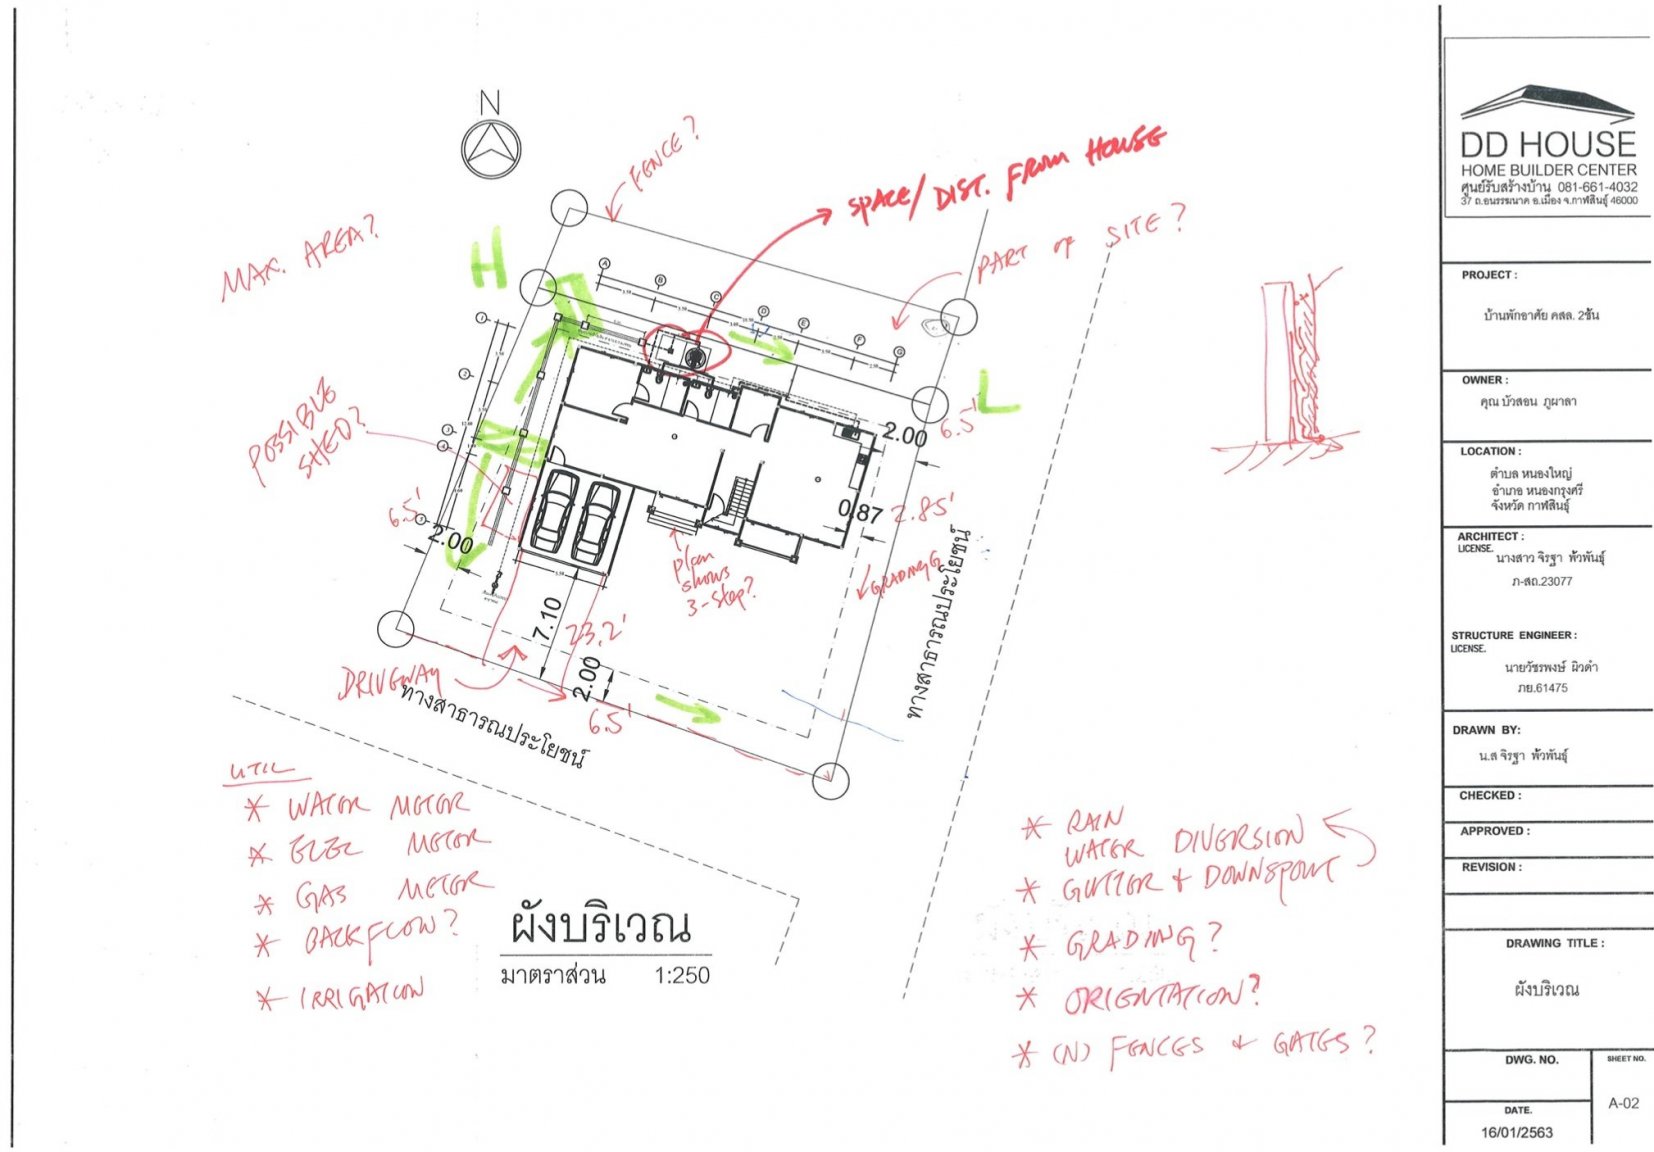 N
FENCE?
SPACE/ DIST. FROM HOUSE
MAX. AREA?
PART OF SITE?
H
L
A
B
C
D
E
F
G
1
2
3
4
5
POSSIBLE
SHED?
2.00
6.5'
0.87
2.85'
6.5'
2.00
GRADING
plan
shows
3-step?
7.10
23.2'
2.00
6.5'
DRIVEWAY
ทางสาธารณประโยชน์
ทางสาธารณประโยชน์
UTIL
* WATER METER
* ELEC METER
* GAS METER
* BACKFLOW?
* IRRIGATION
ผังบริเวณ
มาตราส่วน 1:250
* RAIN
WATER DIVERSION
* GUTTER + DOWNSPOUT
* GRADING?
* ORIENTATION?
* (N) FENCES + GATES?
DD HOUSE
HOME BUILDER CENTER
ศูนย์รับสร้างบ้าน 081-661-4032
37 ถ.อนรรฆนาค อ.เมือง จ.กาฬสินธุ์ 46000
PROJECT :
บ้านพักอาศัย คสล. 2ชั้น
OWNER :
คุณ บัวสอน ภูผาลา
LOCATION :
ตำบล หนองใหญ่
อำเภอ หนองกรุงศรี
จังหวัด กาฬสินธุ์
ARCHITECT :
LICENSE.
นางสาว จิรฐา พัวพันธุ์
ภ-สถ.23077
STRUCTURE ENGINEER :
LICENSE.
นายวัชรพงษ์ ผิวดำ
ภย.61475
DRAWN BY:
น.ส จิรฐา พัวพันธุ์
CHECKED :
APPROVED :
REVISION :
DRAWING TITLE :
ผังบริเวณ
DWG. NO.
SHEET NO.
A-02
DATE.
16/01/2563